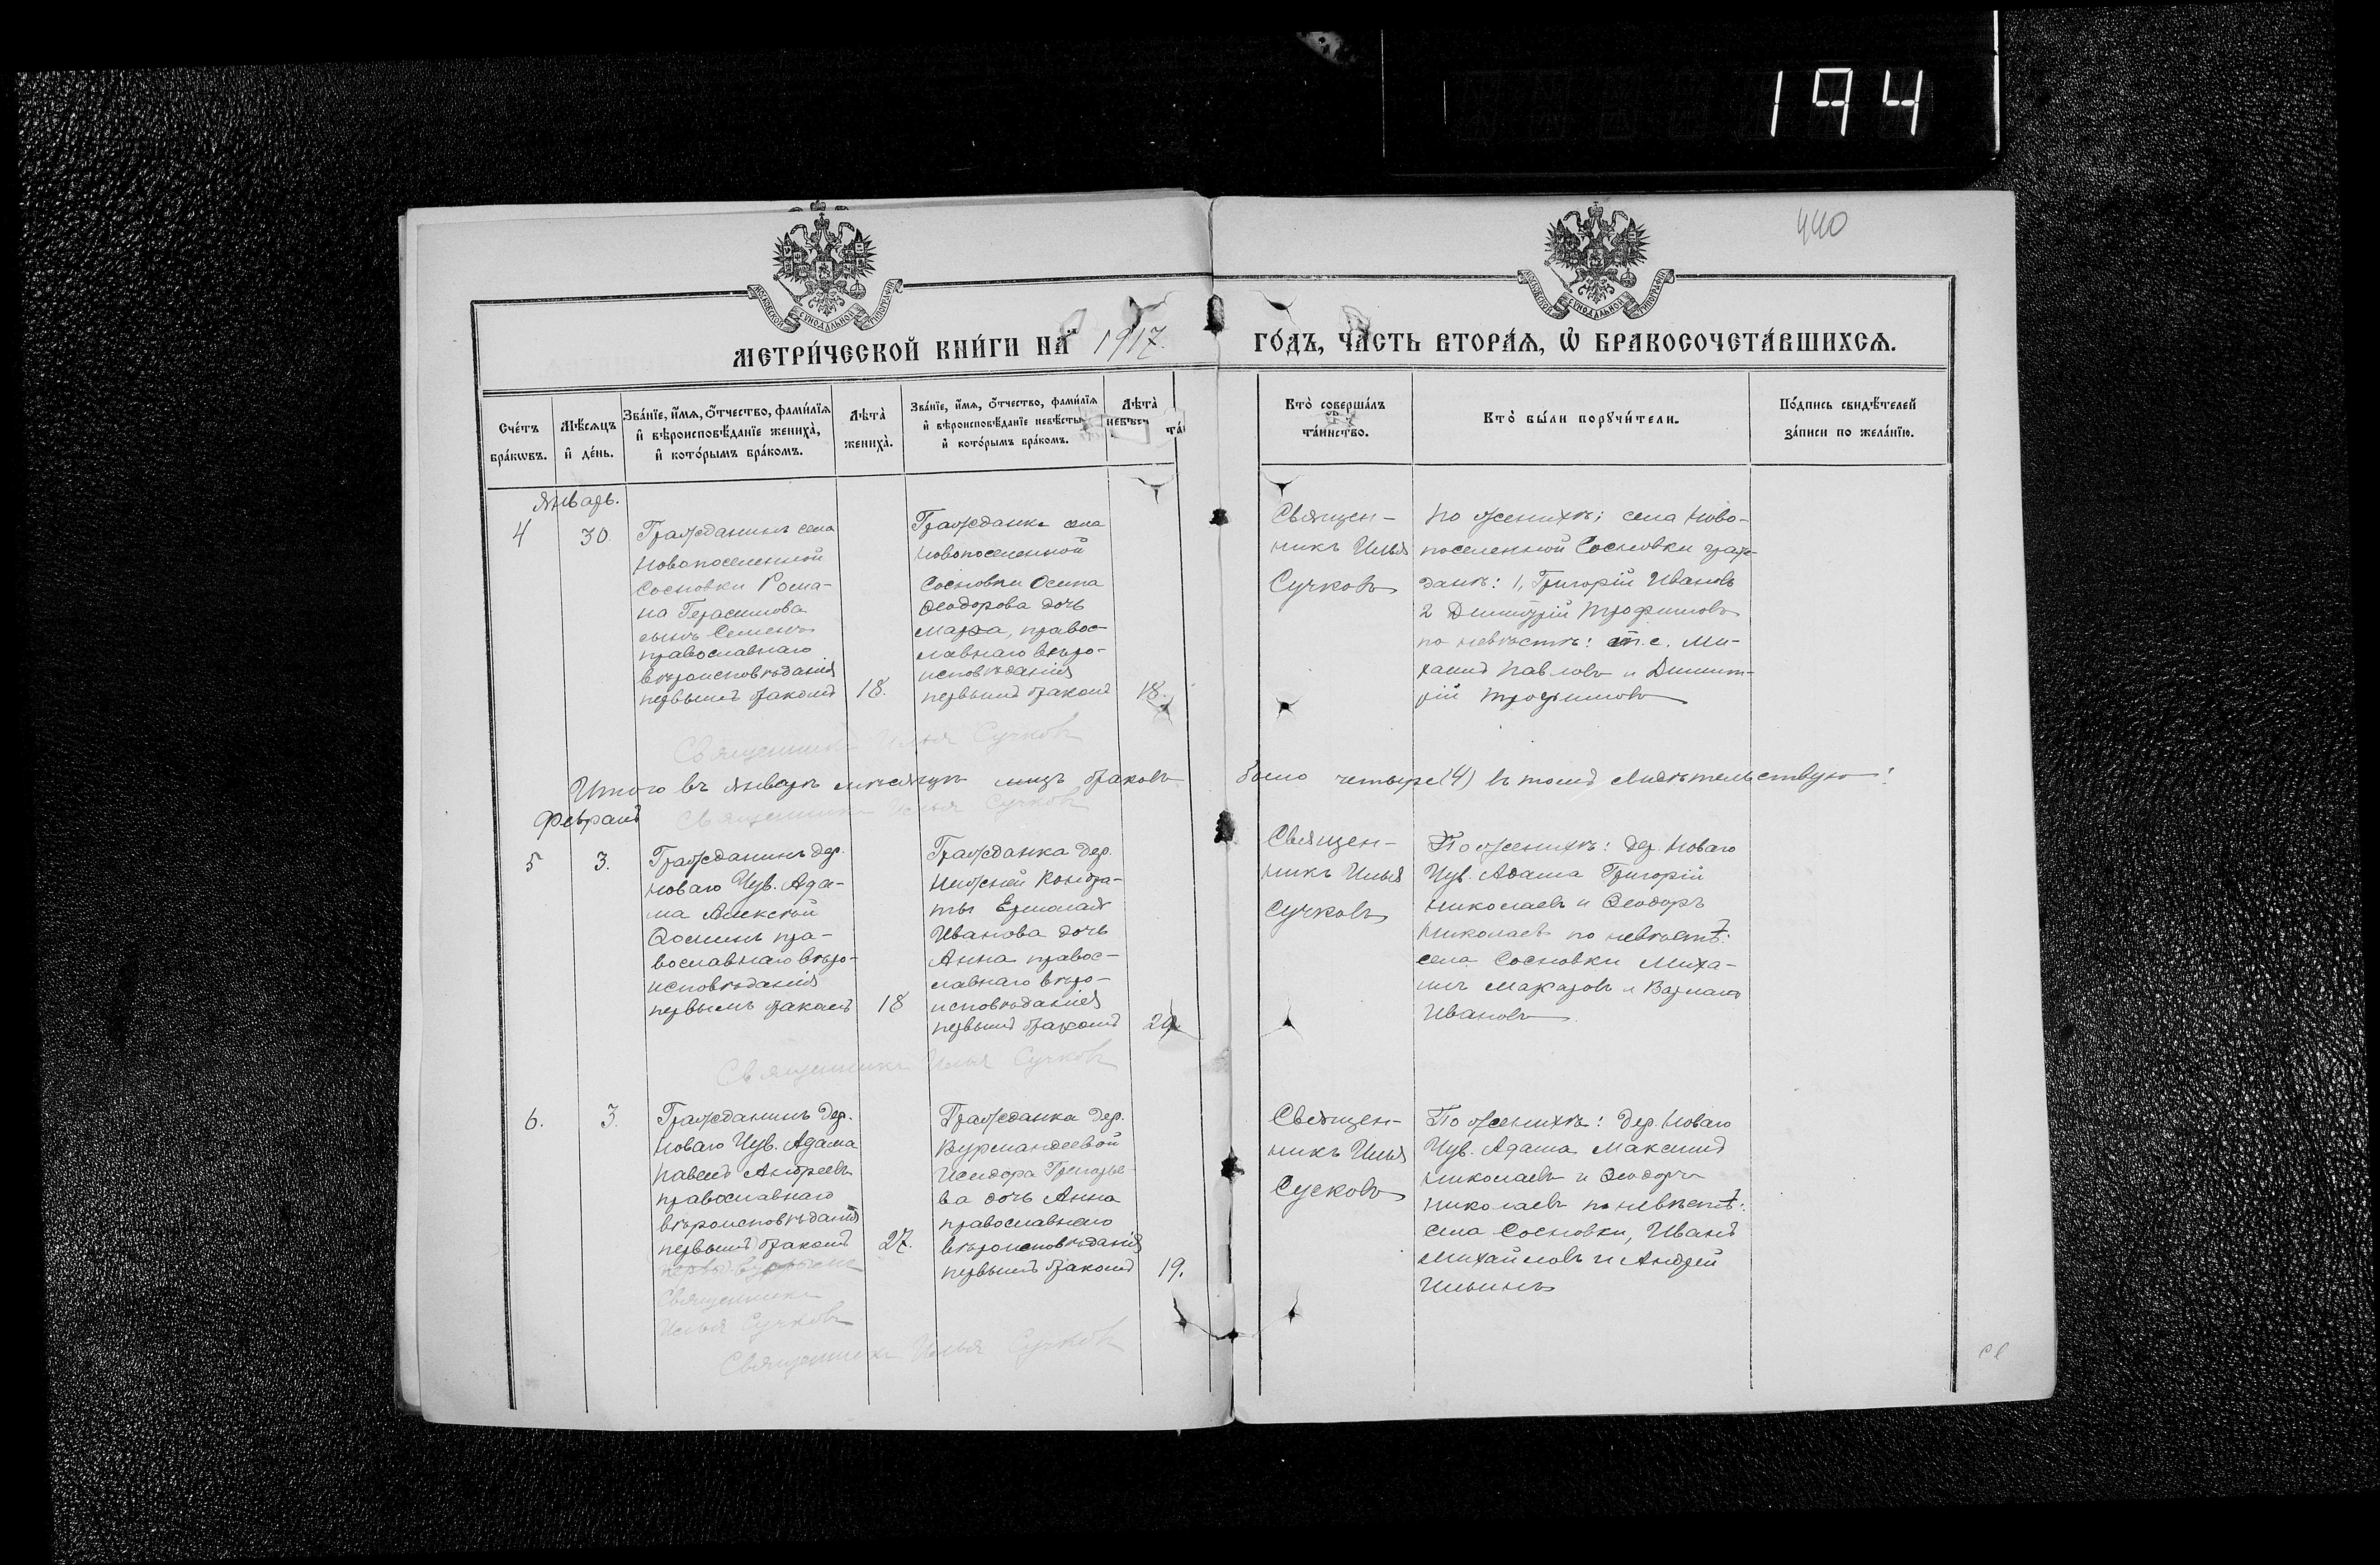 194
440
МОСКОВСКОЙ СѴНОДАЛЬНОЙ ТИПОГРАФІИ
МОСКОВСКОЙ СѴНОДАЛЬНОЙ ТИПОГРАФІИ
МЕТРИ́ЧЕСКОЙ КНИ́ГИ НА 1917. ГО́ДЪ, ЧА́СТЬ ВТОРА́Ѧ, Ѡ БРАКОСОЧЕТА́ВШИХСѦ.
Сче́тъ бра́кѡвъ.
Мѣ́сѧцъ и҆ де́нь.
Зва́нїе, и҆́мѧ, ѻ҆́тчество, фами́лїѧ
и҆ вѣроисповѣ́данїе жениха̀,
и҆ кото́рымъ бра́комъ.
Лѣта̀
жениха̀.
Зва́нїе, и҆́мѧ, ѻ҆́тчество, фами́лїѧ
и҆ вѣроисповѣ́данїе невѣ́сты,
и҆ кото́рымъ бра́комъ.
Лѣта̀
Кто̀ соверша́лъ
та́инство.
Кто̀ бы́ли порꙋчи́тели.
По́дпись свидѣ́телей
за́писи по жела́нїю.
Январь.
4
30.
Гражданинъ села
Новопоселенной
Сосновки Рома-
на Герасимова
сынъ Семенъ
православнаго
вѣроисповѣданія
первымъ бракомъ
18.
Гражданка села
Новопоселенной
Сосновки Осипа
Ѳеодорова дочь
Марѳа, правос-
лавнаго вѣро-
исповѣданія
первымъ бракомъ
18.
Священ-
никъ Илья
Сучковъ
По женихѣ: села Ново-
поселенной Сосновки граж-
данѣ: 1, Григорій Ивановъ
2 Димитрій Трофимовъ
по невѣстѣ: т.с. Ми-
хаилъ Павловъ и Димит-
рій Трофимовъ
Священникъ Илья Сучковъ
Итого въ Январѣ мѣсяцѣ лицъ браковъ было четыре (4) въ томъ свидѣтельствую:
Священникъ Илья Сучковъ
Февраль
5
3.
Гражданинъ дер.
Новаго Чув. Ада-
ма Алексѣй
Ѳоминъ пра-
вославнаго вѣро-
исповѣданія
первымъ бракомъ
18
Гражданка дер.
Нижней Кондра-
ты Ермолая
Иванова дочь
Анна правос-
лавнаго вѣро-
исповѣданія
первымъ бракомъ
Священ-
никъ Илья
Сучковъ
По женихѣ: дер. Новаго
Чув. Адама Григорій
Николаевъ и Ѳеодоръ
Николаевъ по невѣстѣ:
села Сосновки Миха-
илъ Макаровъ и Варлаамъ
Ивановъ
Священникъ Илья Сучковъ
6.
3.
Гражданинъ дер.
Новаго Чув. Адама
Павелъ Андреевъ
православнаго
вѣроисповѣданія
первымъ бракомъ
27.
Священникъ
Илья Сучковъ
Гражданка дер.
Вурмандеевой
Исидора Григорье-
ва дочь Анна
православнаго
вѣроисповѣданія
первымъ бракомъ
19.
Священ-
никъ Илья
Сучковъ
По женихѣ: дер. Новаго
Чув. Адама Максимъ
Николаевъ и Ѳеодоръ
Николаевъ по невѣстѣ:
села Сосновки, Иванъ
Михайловъ и Андрей
Ильинъ
Священникъ Илья Сучковъ